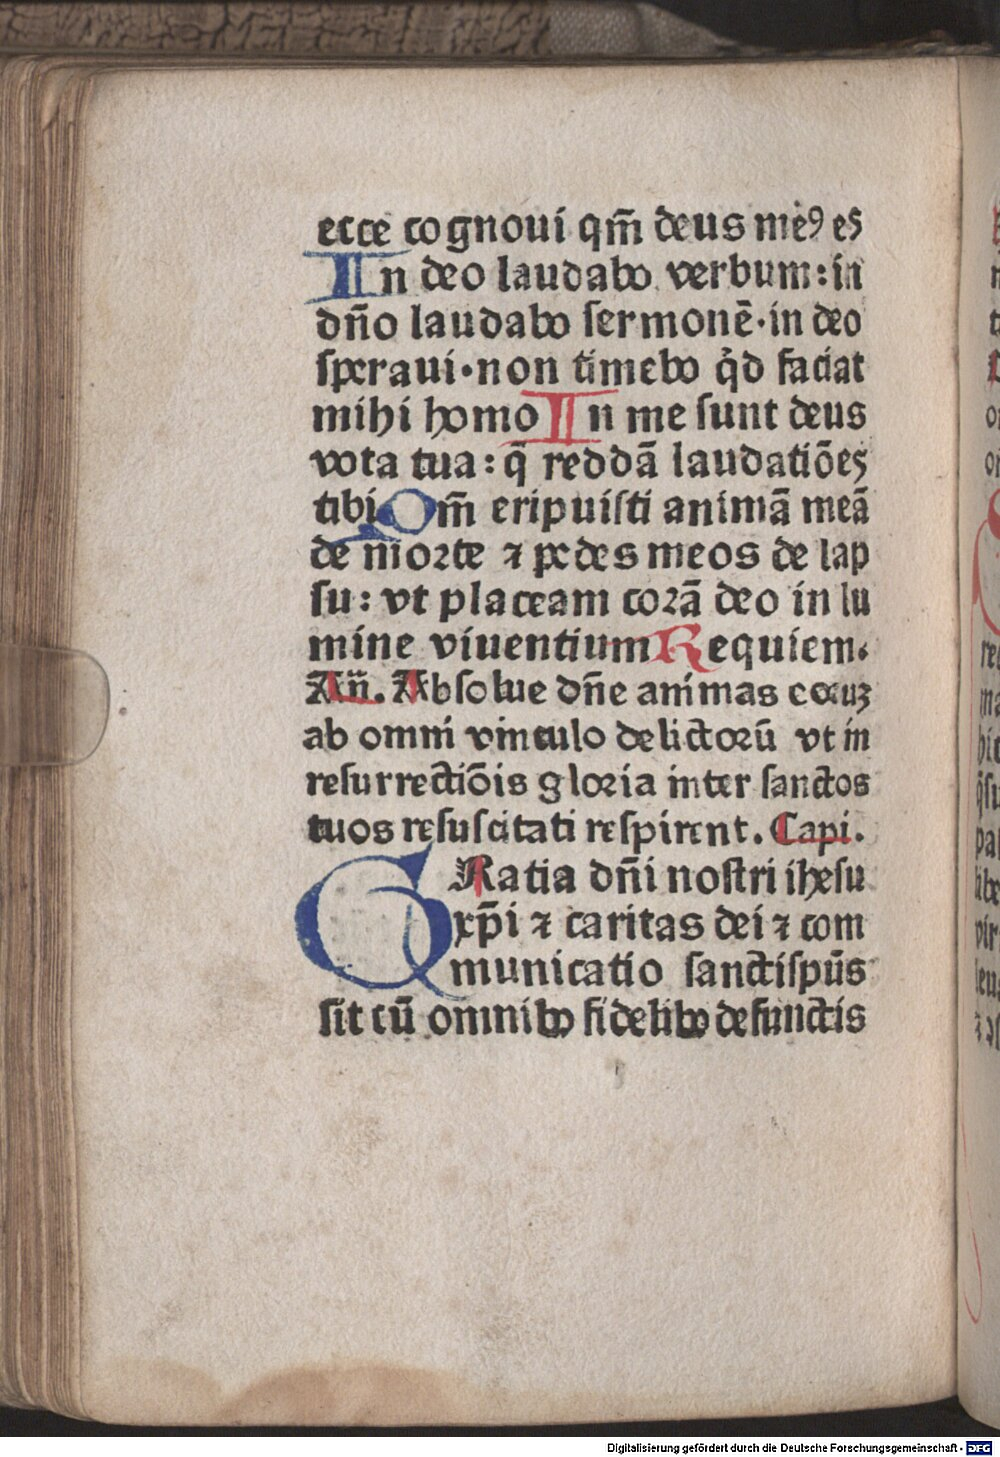 ecce cognoui qm̄ deus meꝰ es
In deo laudabo verbum: in
dn̄o laudabo ſermonē·in deo
ſperaui·non timebo qͥd faciat
mihi homo In me ſunt deus
vota tua: q̄ reddā laudatiōes
tibi Qm̄ eripuiſti animā meā
de morte ⁊ pedes meos de lap
ſu: vt placeam corā deo in lu
mine viuentium Requiem.
An̄. Abſolue dn̄e animas eoꝝ
ab omni vinculo delictorū vt in
reſurrectiōis gloria inter ſanctos
tuos reſuſcitati reſpirent. Capi.
GRatia dn̄i noſtri iheſu
xp̄i ⁊ caritas dei ⁊ com
municatio ſanctiſpūs
ſit cū omnibꝰ fidelibꝰ defunctis
Digitalisierung gefördert durch die Deutsche Forschungsgemeinschaft - DFG